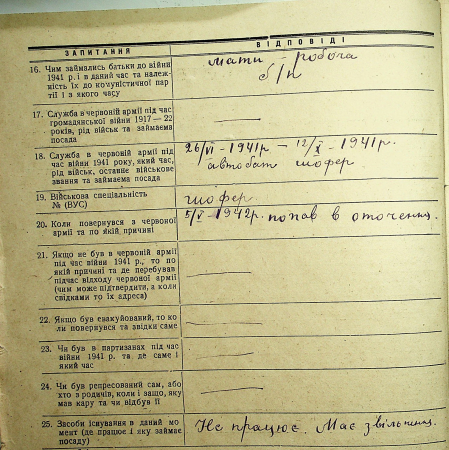 ЗАПИТАННЯ
ВІДПОВІДІ
16. Чим займались батьки до війни
1941 р. і в даний час та належ-
ність їх до комуністичної пар
тії і з якого часу
мати – робоча
б/п
17. Служба в червоній армії під час
громадянської війни 1917—22
років, рід військ та займаєма
посада
18. Служба в червоній армії під
час війни 1941 року, який час,
рід військ, останнє військове
звання та займаєма посада
26/VI – 1941р – 12/X – 1941р.
автобат шофер.
19. Військова спеціальність
№ (ВУС)
шофер
20. Коли повернувся з червоної
армії та по якій причині
5/V – 1942р. попав в оточення.
21. Якщо не був в червоній армії
під час війни 1941 р., то по
якій причині та де перебував
підчас відходу червоної армії
(чим може підтвердити, а коли
свідками то їх адреса)
22. Якщо був евакуйований, то ко
ли повернувся та звідки саме
23. Чи був в партизанах під час
війни 1941 р. та де саме і
який час
24. Чи був репресований сам, або
хто з родичів, коли і защо, яку
мав кару та чи відбув її
25. Засоби існування в даний мо
мент (де працює і яку займає
посаду)
Не працює. Має звільнення.